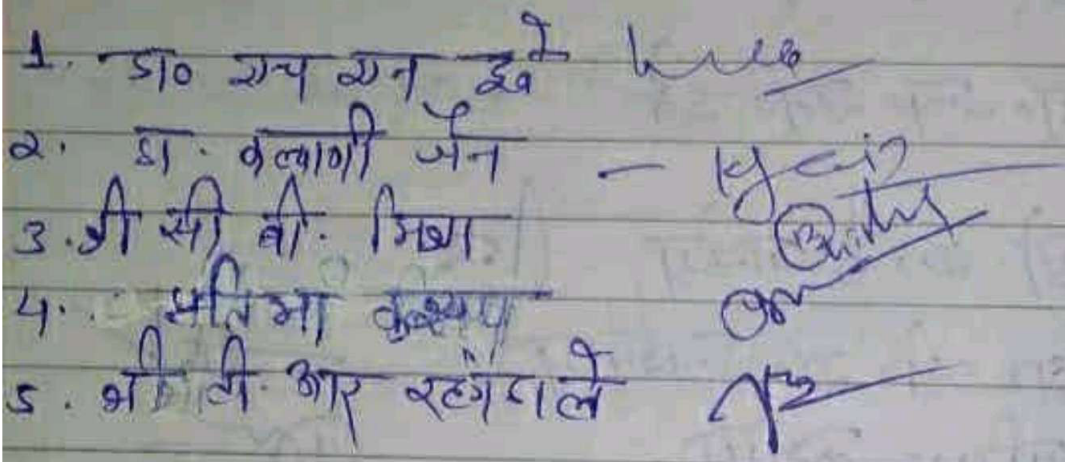 1. डा० एच एन दुबे
2. डा. कल्याणी जैन -
3. श्री सी बी. मिश्रा
4. प्रतिमा कश्यप
5. श्री टी. आर रहंगडाले